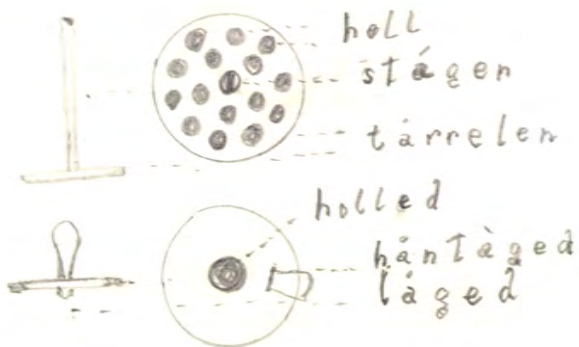 holl
stágen
tárrelen
holled
hántàged
láged